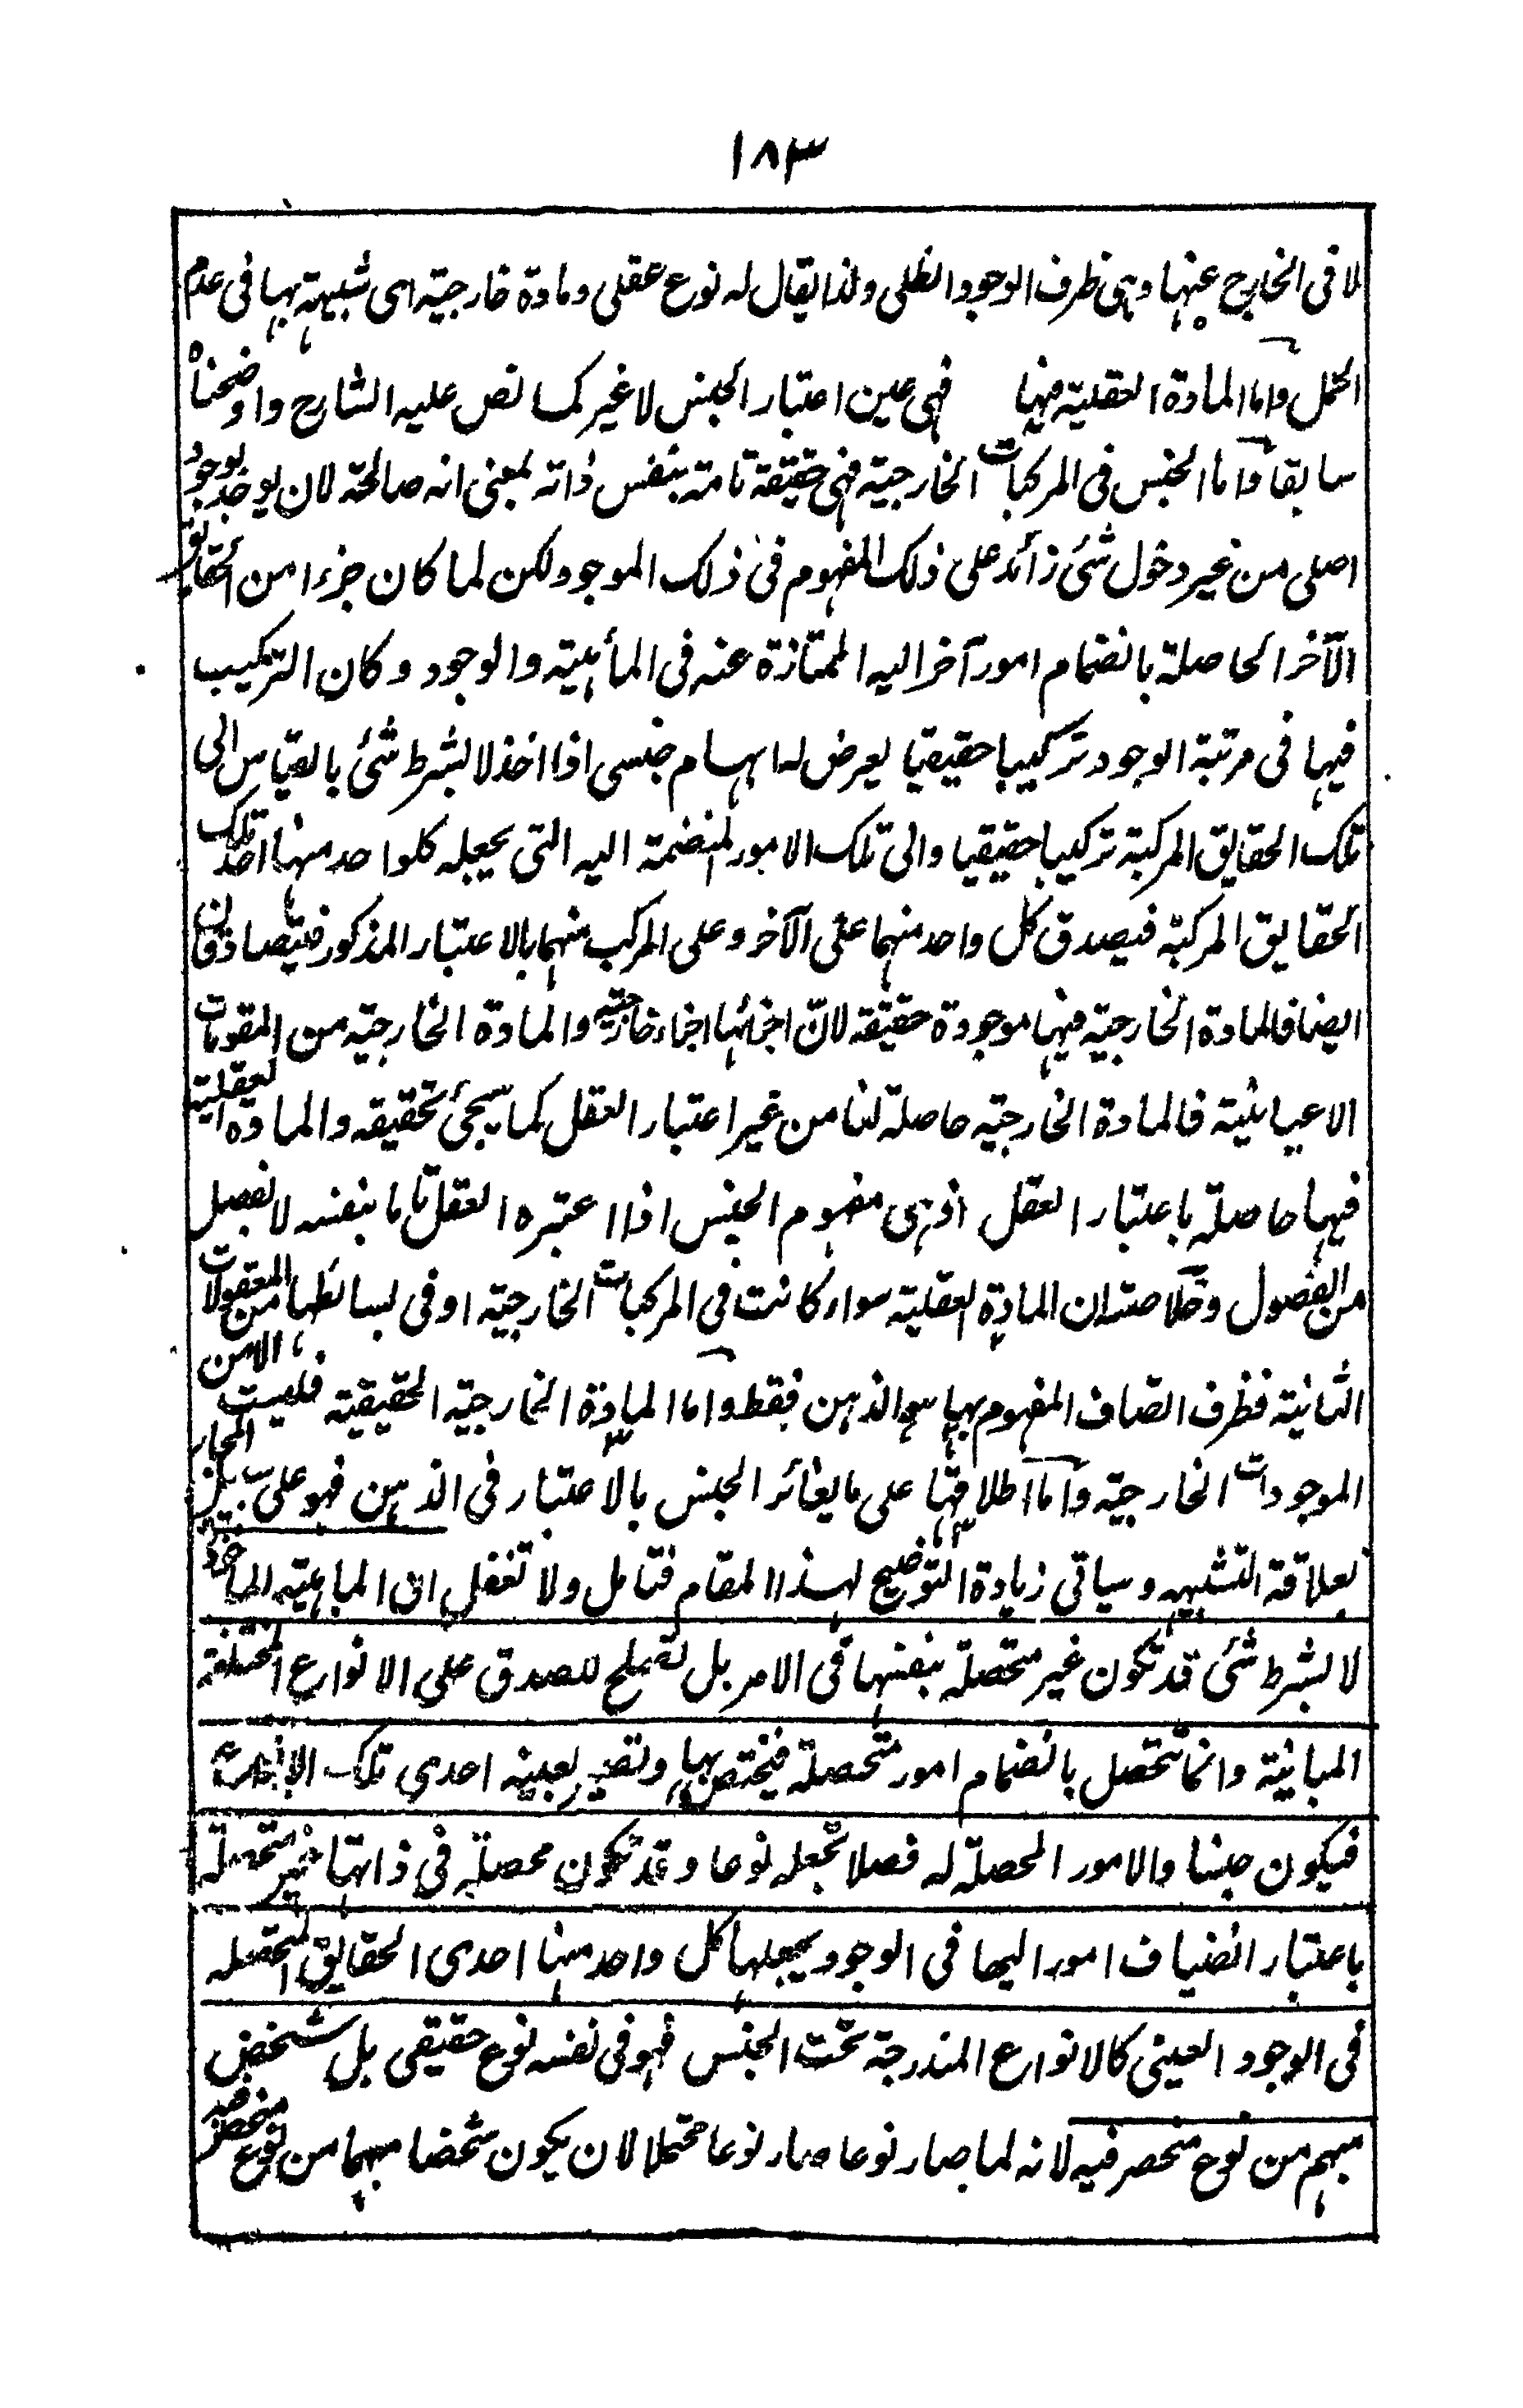 ١٨٣
لا فى الخارج عنها وهى ظرف الوجود الظلى ولذا يقال له نوع عقلى ومادة خارجية اى شبيهة بها فى عدم
الحمل واما المادة العقلية فيها فهى عين اعتبار الجنس لا غير كما نص عليه الشارح واوضحناه
سابقا واما الجنس فى المركبات الخارجية فهى حقيقة تامة بنفس ذاته بمعنى انه صالحة لان يوجد بوجود
اصلى من غير دخول شئ زائد على ذلك المفهوم فى ذلك الموجود لكن لما كان جزءا من الحقايق
الآخر الحاصلة بانضمام امور آخر اليه الممتازة عنه فى الماهية والوجود وكان التركيب
فيها فى مرتبة الوجود تركيبا حقيقيا يعرض له ابهام جنسى اذا اخذ لا بشرط شئ بالقياس الى
تلك الحقايق المركبة تركيبا حقيقيا والى تلك الامور المنضمة اليه التى يجعله كلواحد منها احد تلك
الحقايق المركبة فيصدق كل واحد منهما على الآخر وعلى المركب منهما بالاعتبار المذكور فيتصادقان
ايضا فالمادة الخارجية فيها موجودة حقيقة لانّ اجزائها اجزاء خارجية والمادة الخارجية من المقومات
الاعيانية فالمادة الخارجية حاصلة لنا من غير اعتبار العقل كما سيجئ تحقيقه والمادة العقلية
فيها حاصلة باعتبار العقل اذ هى مفهوم الجنس اذا اعتبره العقل تاما بنفسه لا بفصل
من الفصول وخلاصته ان المادة العقلية سواء كانت فى المركبات الخارجية او فى بسائطها من المعقولات
الثانية فظرف اتصاف المفهوم بها هو الذهن فقط واما المادة الخارجية الحقيقية فليست الا من
الموجودات الخارجية واما اطلاقها على ما يغائر الجنس بالاعتبار فى الذهن فهو على سبيل المجاز
بعلاقة التشبيه وسياتى زيادة التوضيح لهذا المقام فتامل ولا تغفل ان الماهية الماخوذة
لا بشرط شئ قد تكون غير متحصلة بنفسها فى الامر بل تصلح للصدق على الانواع المختلفة
المباينة وانما تتحصل بانضمام امور متحصلة فيختص بها وتصير بعينه احدى تلك الاشياء
فيكون جنسا والامور المحصلة له فصلا تجعله نوعا وقد تكون محصلة فى ذاتها غير متحصلة
باعتبار انضياف امور اليها فى الوجود يجعلها كل واحد منها احدى الحقايق المتحصله
فى الوجود العينى كالانواع المندرجة تحت الجنس فهو فى نفسه نوع حقيقى بل شخص
مبهم من نوع منحصر فيه لانه لما صار نوعا صار نوعا محتملا لان يكون شخصا مبهما من نوع منحصر فيه